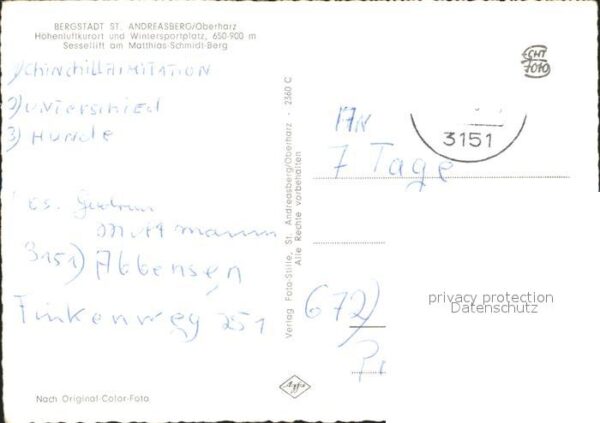 BERGSTADT ST. ANDREASBERG/Oberharz
Höhenluftkurort und Wintersportplatz, 650-900 m
Sessellift am Matthias-Schmidt-Berg
1) CHINCHILLAIMITATION
2) UNTERSCHIED
3) HUNDE
3151) Abbensen
Finkenweg 251
Nach Original-Color-Foto
Verlag Foto-Stille, St. Andreasberg/Oberharz - 2360 C
Alle Rechte vorbehalten
Agfa
ECHT
FOTO
3151
AN
7 Tage
672)
privacy protection
Datenschutz